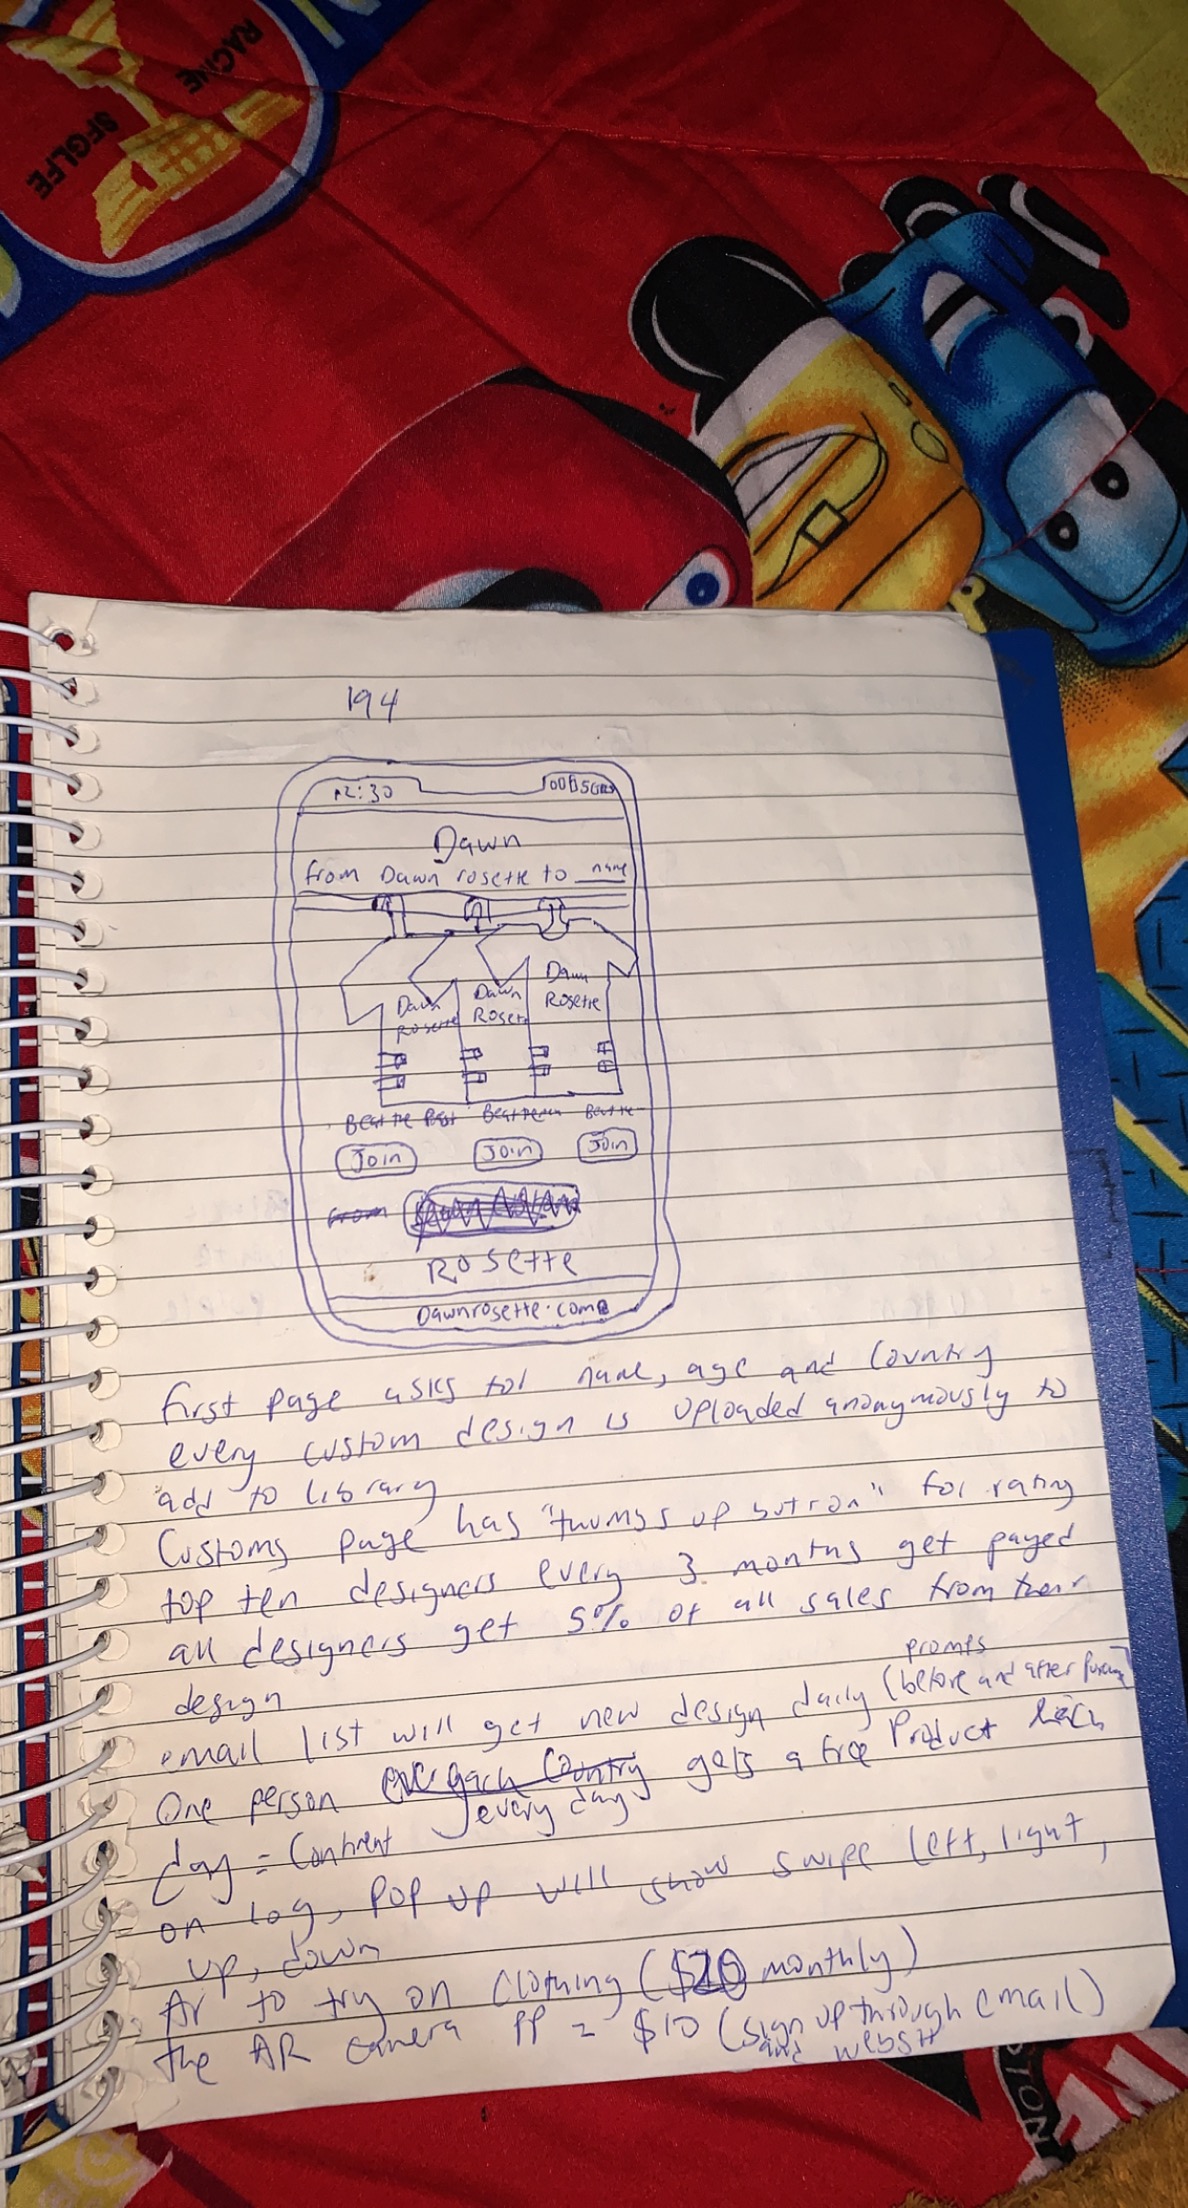 RACING
194
12:30
Dawn
from Dawn rosette to name
Dawn Rosette
Dawn Rosette
Dawn Rosette
Join
Join
Join
from
Rosette
Dawnrosette.com
first page asks for name, age and Country
every custom design is uploaded anonymously to
add to library
Customs page has "thumbs up button" for rating
top ten designers every 3 months get payed
all designers get 5% of all sales from their
design
promos
email list will get new design daily (before and after
One person each Country gets a free Product each
every day
day = Continent
on log, pop up will show swipe left, right,
up, down
Ar to try on Clothing ($20 monthly)
the AR camera PP = $10 (sign up through email)
and